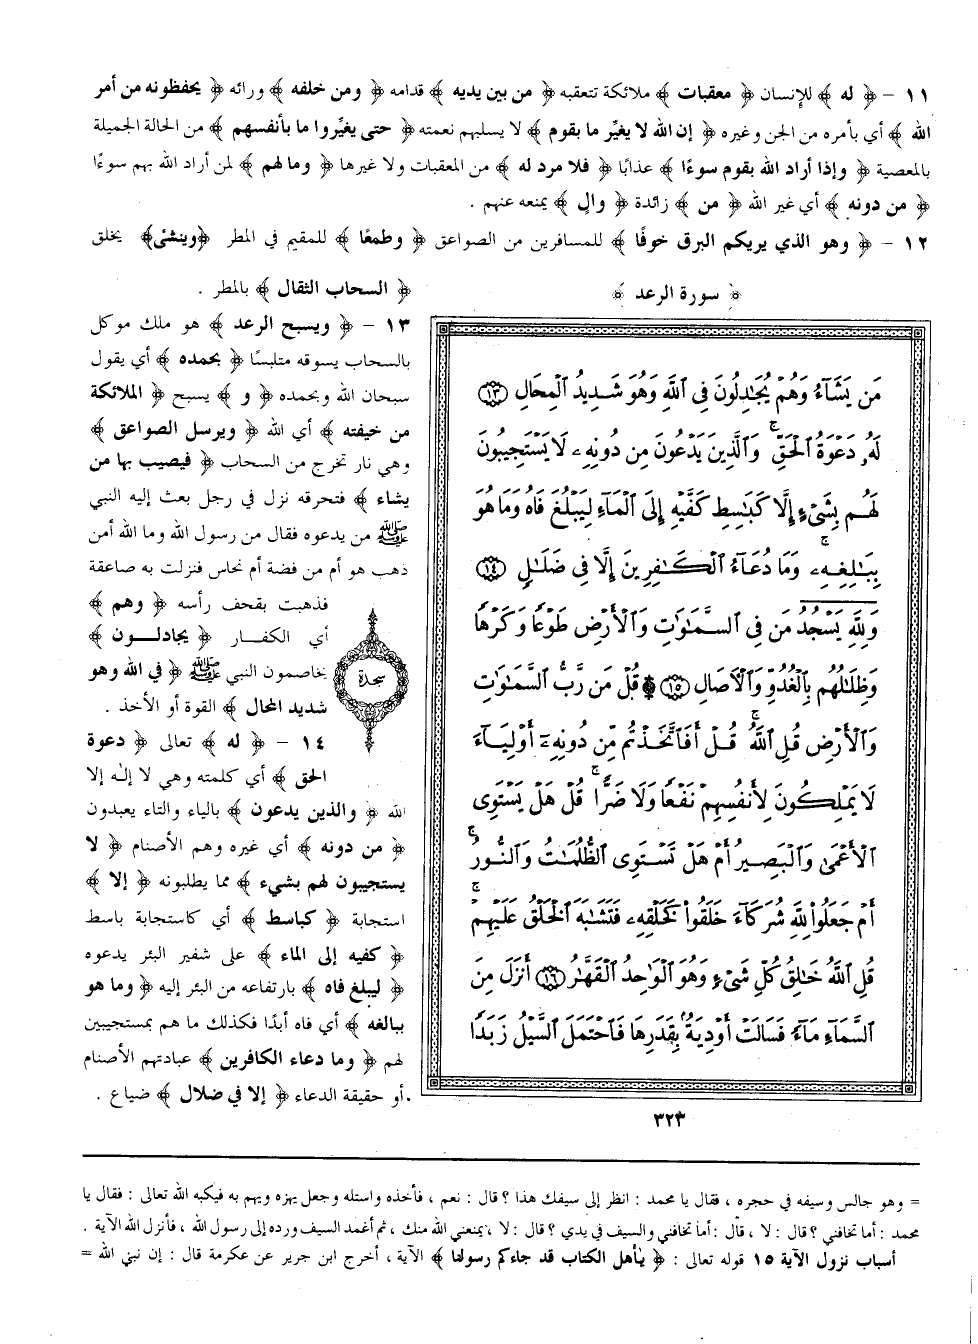 ١١ - ﴿ له ﴾ للإنسان ﴿ معقبات ﴾ ملائكة تتعقبه ﴿ من بين يديه ﴾ قدامه ﴿ ومن خلفه ﴾ ورائه ﴿ يحفظونه من أمر
الله ﴾ أي بأمره من الجن وغيره ﴿ إن الله لا يغيِّر ما بقوم ﴾ لا يسلبهم نعمته ﴿ حتى يغيِّروا ما بأنفسهم ﴾ من الحالة الجميلة
بالمعصية ﴿ وإذا أراد الله بقوم سوءًا ﴾ عذابًا ﴿ فلا مرد له ﴾ من المعقبات ولا غيرها ﴿ وما لهم ﴾ لمن أراد الله بهم سوءًا
﴿ من دونه ﴾ أي غير الله ﴿ من ﴾ زائدة ﴿ والٍ ﴾ يمنعه عنهم .
١٢ - ﴿ وهو الذي يريكم البرق خوفًا ﴾ للمسافرين من الصواعق ﴿ وطمعًا ﴾ للمقيم في المطر ﴿وينشئ﴾ يخلق
﴿ السحاب الثقال ﴾ بالمطر .
١٣ - ﴿ ويسبح الرعد ﴾ هو ملك موكل
بالسحاب يسوقه متلبسًا ﴿ بحمده ﴾ أي يقول
سبحان الله وبحمده ﴿ و ﴾ يسبح ﴿ الملائكة
من خيفته ﴾ أي الله ﴿ ويرسل الصواعق ﴾
وهي نار تخرج من السحاب ﴿ فيصيب بها من
يشاء ﴾ فتحرقه نزل في رجل بعث إليه النبي
ﷺ من يدعوه فقال من رسول الله وما الله أمن
ذهب هو أم من فضة أم نحاس فنزلت به صاعقة
فذهبت بقحف رأسه ﴿ وهم ﴾
أي الكفار ﴿ يجادلون ﴾
يخاصمون النبي ﷺ ﴿ في الله وهو
شديد المحال ﴾ القوة أو الأخذ .
١٤ - ﴿ له ﴾ تعالى ﴿ دعوة
الحق ﴾ أي كلمته وهي لا إله إلا
الله ﴿ والذين يدعون ﴾ بالياء والتاء يعبدون
﴿ من دونه ﴾ أي غيره وهم الأصنام ﴿ لا
يستجيبون لهم بشيء ﴾ مما يطلبونه ﴿ إلا ﴾
استجابة ﴿ كباسط ﴾ أي كاستجابة باسط
﴿ كفيه إلى الماء ﴾ على شفير البئر يدعوه
﴿ ليبلغ فاه ﴾ بارتفاعه من البئر إليه ﴿ وما هو
ببالغه ﴾ أي فاه أبدًا فكذلك ما هم بمستجيبين
لهم ﴿ وما دعاء الكافرين ﴾ عبادتهم الأصنام
أو حقيقة الدعاء ﴿ إلا في ضلال ﴾ ضياع .
سجدة
﴿ سورة الرعد ﴾
مَن يَشَآءُ وَهُمْ يُجَٰدِلُونَ فِى ٱللَّهِ وَهُوَ شَدِيدُ ٱلْمِحَالِ ١٣
لَهُۥ دَعْوَةُ ٱلْحَقِّ ۚ وَٱلَّذِينَ يَدْعُونَ مِن دُونِهِۦ لَا يَسْتَجِيبُونَ
لَهُم بِشَىْءٍ إِلَّا كَبَٰسِطِ كَفَّيْهِ إِلَى ٱلْمَآءِ لِيَبْلُغَ فَاهُ وَمَا هُوَ
بِبَٰلِغِهِۦ ۚ وَمَا دُعَآءُ ٱلْكَٰفِرِينَ إِلَّا فِى ضَلَٰلٍ ١٤
وَلِلَّهِ يَسْجُدُ مَن فِى ٱلسَّمَٰوَٰتِ وَٱلْأَرْضِ طَوْعًا وَكَرْهًا
وَظِلَٰلُهُم بِٱلْغُدُوِّ وَٱلْءَاصَالِ ١٥ قُلْ مَن رَّبُّ ٱلسَّمَٰوَٰتِ
وَٱلْأَرْضِ قُلِ ٱللَّهُ ۚ قُلْ أَفَٱتَّخَذْتُم مِّن دُونِهِۦٓ أَوْلِيَآءَ
لَا يَمْلِكُونَ لِأَنفُسِهِمْ نَفْعًا وَلَا ضَرًّا ۚ قُلْ هَلْ يَسْتَوِى
ٱلْأَعْمَىٰ وَٱلْبَصِيرُ أَمْ هَلْ تَسْتَوِى ٱلظُّلُمَٰتُ وَٱلنُّورُ ۗ
أَمْ جَعَلُوا۟ لِلَّهِ شُرَكَآءَ خَلَقُوا۟ كَخَلْقِهِۦ فَتَشَٰبَهَ ٱلْخَلْقُ عَلَيْهِمْ ۚ
قُلِ ٱللَّهُ خَٰلِقُ كُلِّ شَىْءٍ وَهُوَ ٱلْوَٰحِدُ ٱلْقَهَّٰرُ ١٦ أَنزَلَ مِنَ
ٱلسَّمَآءِ مَآءً فَسَالَتْ أَوْدِيَةٌۢ بِقَدَرِهَا فَٱحْتَمَلَ ٱلسَّيْلُ زَبَدًا
٣٢٣
= وهو جالس وسيفه في حجره ، فقال يا محمد : انظر إلى سيفك هذا ؟ قال : نعم ، فأخذه واستله وجعل يهزه ويهم به فيكبه الله تعالى : فقال يا
محمد : أما تخافني ؟ قال : لا ، قال : أما تخافني والسيف في يدي ؟ قال : لا ، يمنعني الله منك ، ثم أغمد السيف ورده إلى رسول الله ، فأنزل الله الآية .
أسباب نزول الآية ١٥ قوله تعالى : ﴿ يٰأهل الكتاب قد جاءكم رسولنا ﴾ الآية ، أخرج ابن جرير عن عكرمة قال : إن نبي الله =